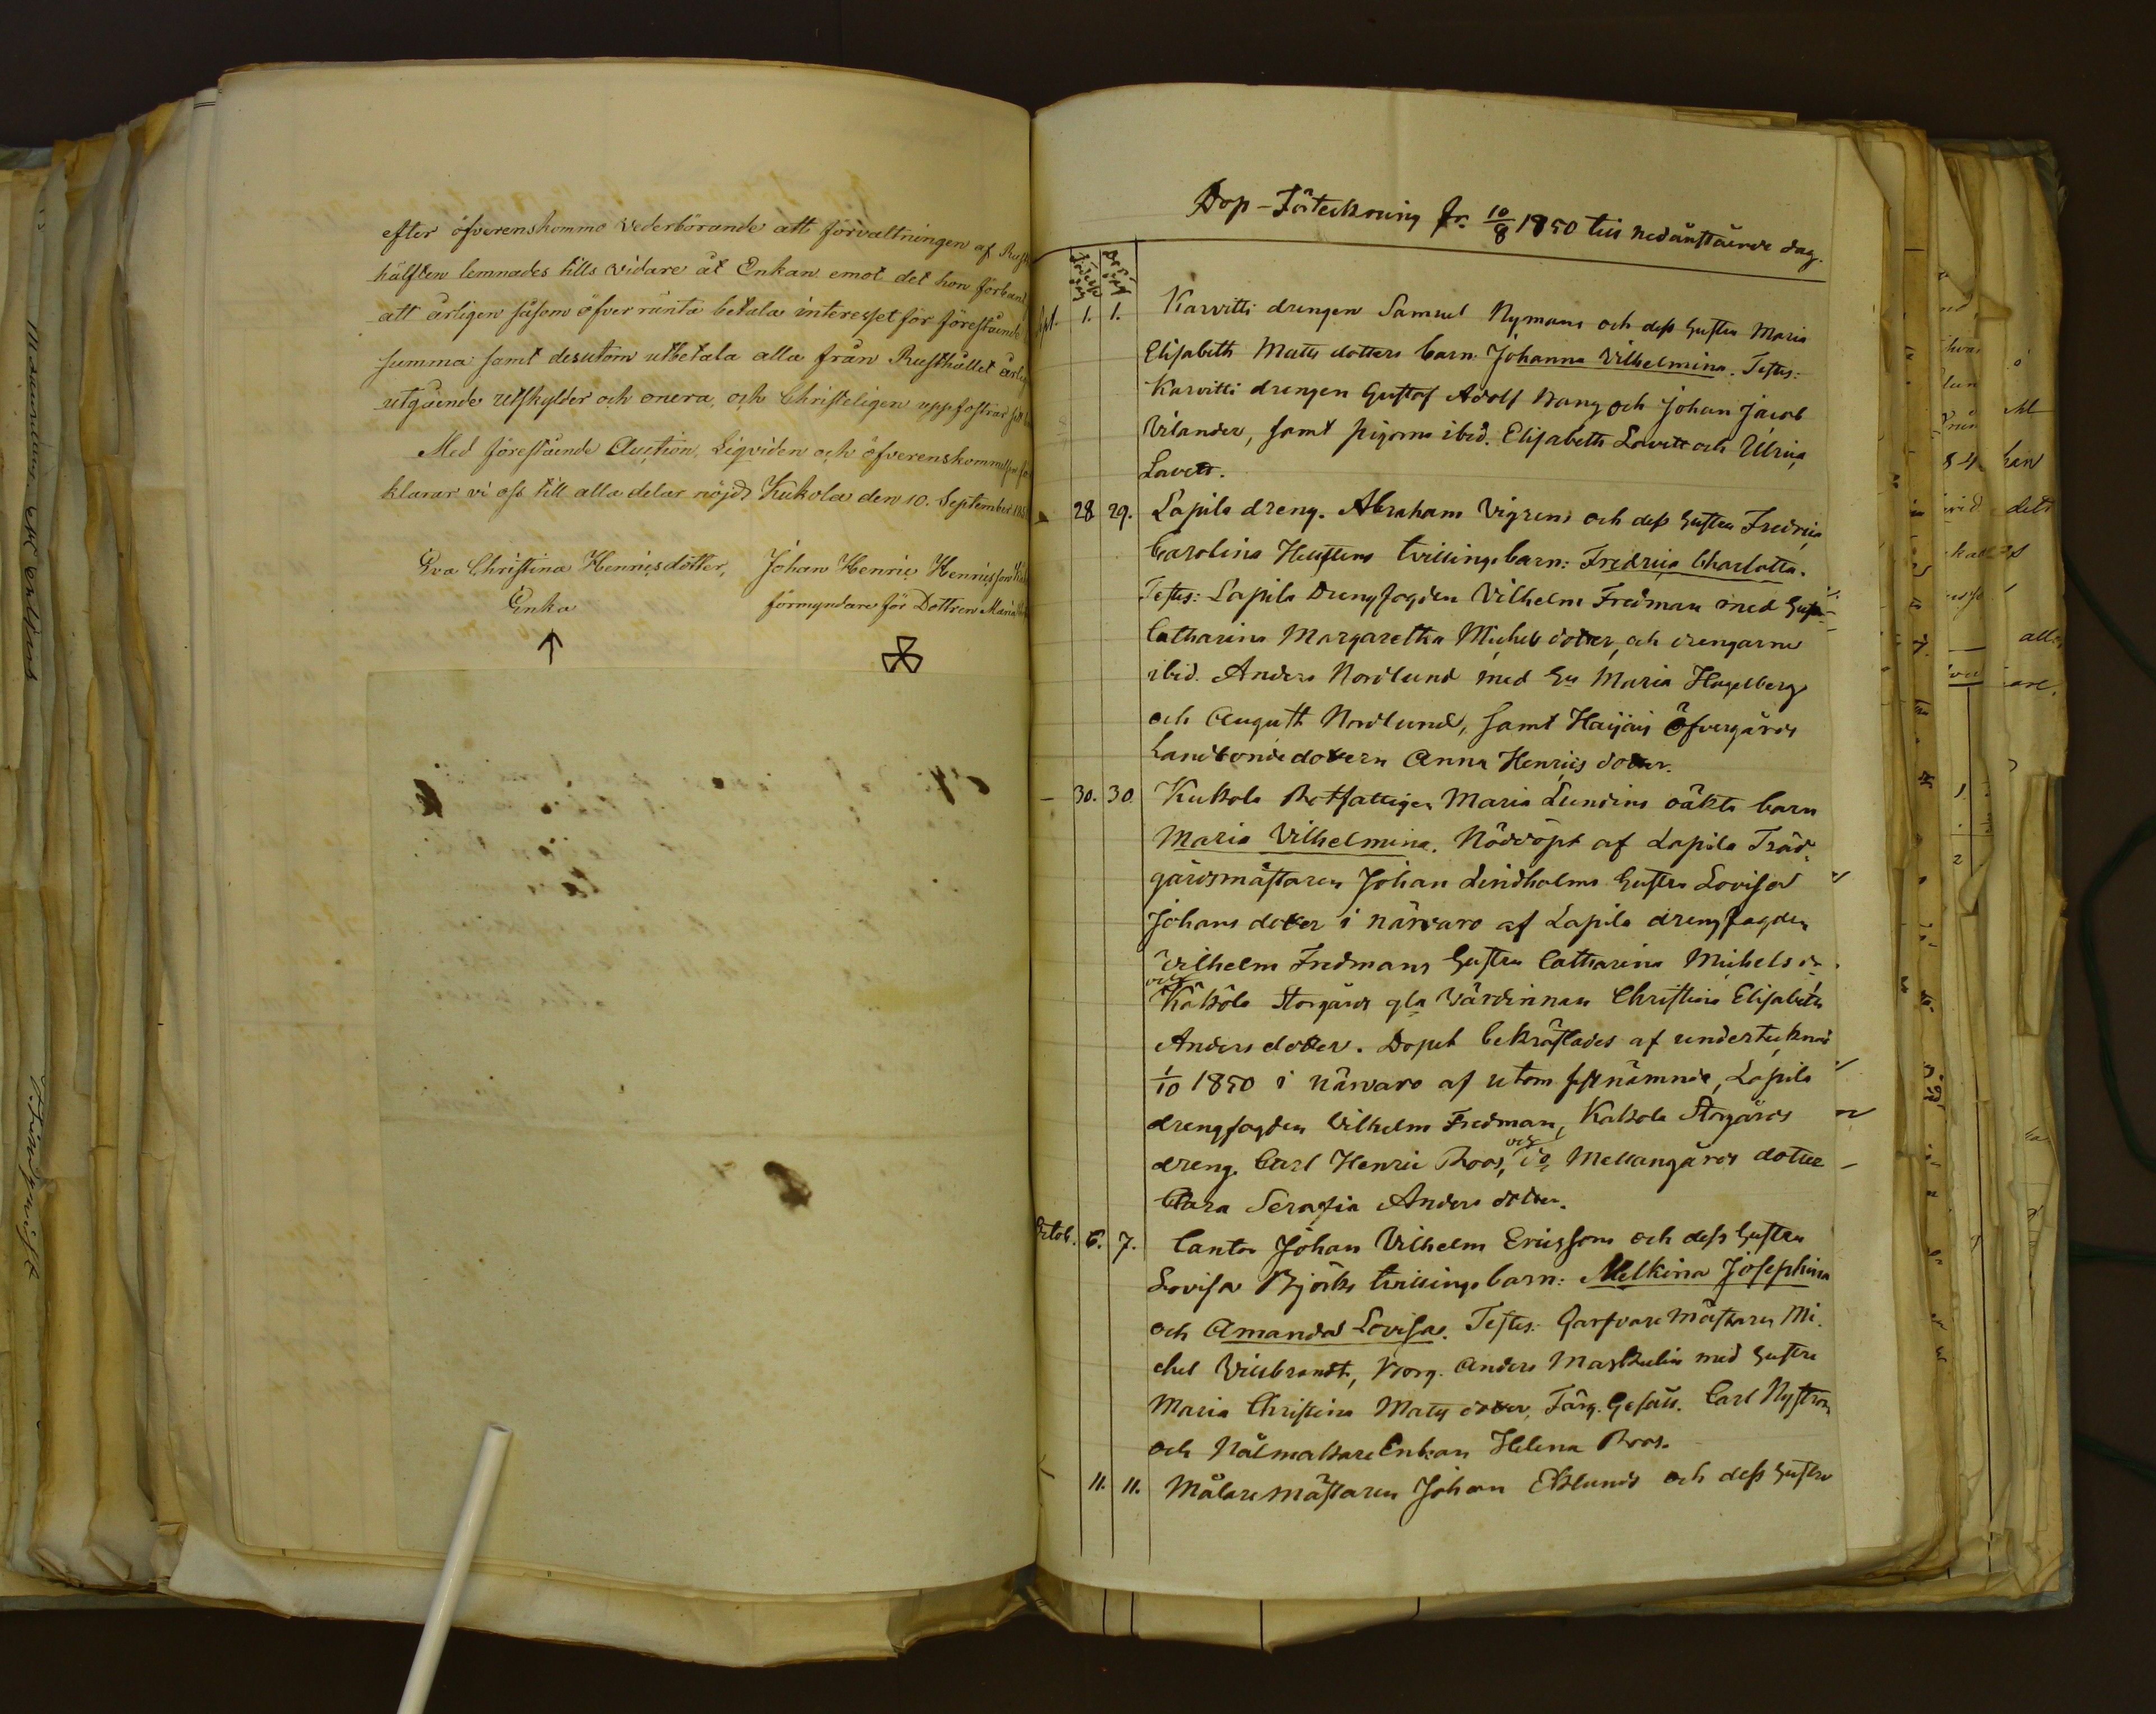 efter öfverenskommo vederbörande att förvaltningen af
hälften lemnades tills vidare åt Enkan emot det hon
att årligen såsom öfver ränta betala interesset för förestående
summa samt desutom utbetala alla från Rusthållet
utgående utskylder och onera, och Christeligen uppfostrar
Med förestående Auction, Liqviden och
klarar vi oss till alla delar nöjde Kukola den 10. September
Eva Christina Henricsdotter, Johan Henric Henricsson
Enka förmyndare för Dottren Maria
Dop-Förteckning fr. 10/8 1850 till nedanstående dag.
Sept. 1. 1. Karvitti drengen Samuel Nymans och dess hustru Maria
Elisabeth Mats dotters barn: Johanna Vilhelmina. Testes:
Karvitti drengen Gustaf Adolf Bang och Johan Jacob
Vilander, samt pigorna ibid. Elisabeth Lovett och Ulrica
Lovett.
28 29. Lapila dreng. Abraham Vigrens och dess hustru Fredrica
Carolina Hellstens tvillingebarn: Fredrica Charlotta.
Testes: Lapila Drengfogden Vilhelm Fredman med
Catharina Margaretha Michels dotter, och drengarne
ibid. Anders Nordlund med Hu Maria Hagelberg
och August Nordlund, samt Haijais Öfvergårds
Landbonde dottern Anna Henrics dotter.
30. 30 Kukola Rotfattigen Maria Lundins oäkta barn
Maria Vilhelmina. Nöddöpt af Lapila Träd-
gårdsmästaren Johan Lindholms hustru Lovisa
Johans dotter i närvaro af Lapila drengfogden
Vilhelm Fredmans hustru Catharina Michels dr
och
Kakola Storgårds gla Värdinnan Christina Elisabeth
Anders dotter. Dopet bekräftades af undertecknad
1/10 1850 i närvaro af utom sistnämnde, Lapila
drengfogden Vilhelm Fredman, Kakola Storgårds
dreng. Carl Henric Roos, och do Mellangårds dotter
Clara Serafia Anders dotter.
Octob. 6. 7. Cantor Johan Vilhelm Ericsson och dess hustru
Lovisa Björks tvillingebarn: Melkina Josephina
och Amanda Lovisa. Testes: Garfvaremästaren Mi-
chel Villbrandt, Borg. Anders Maskulin med hustru
Maria Christina Mats dotter, Färg. Gesäll. Carl Nyström
och Nålmakare Enkan Helena Roos.
11. 11. Målaremästaren Johan Eklunds och dess hustru